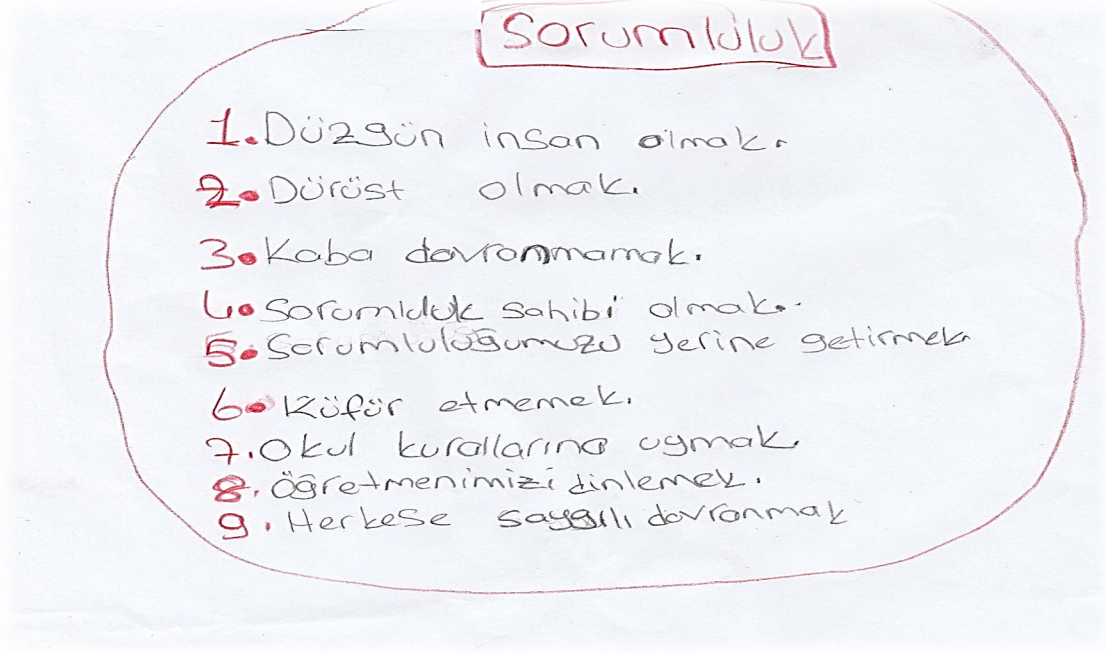 Sorumluluk
1. Düzgün insan olmak.
2. Dürüst olmak.
3. Kaba davranmamak.
4. Sorumluluk sahibi olmak.
5. Sorumluluğumuzu yerine getirmek.
6. Küfür etmemek.
7. Okul kurallarına uymak.
8. Öğretmenimizi dinlemek.
9. Herkese saygılı davranmak